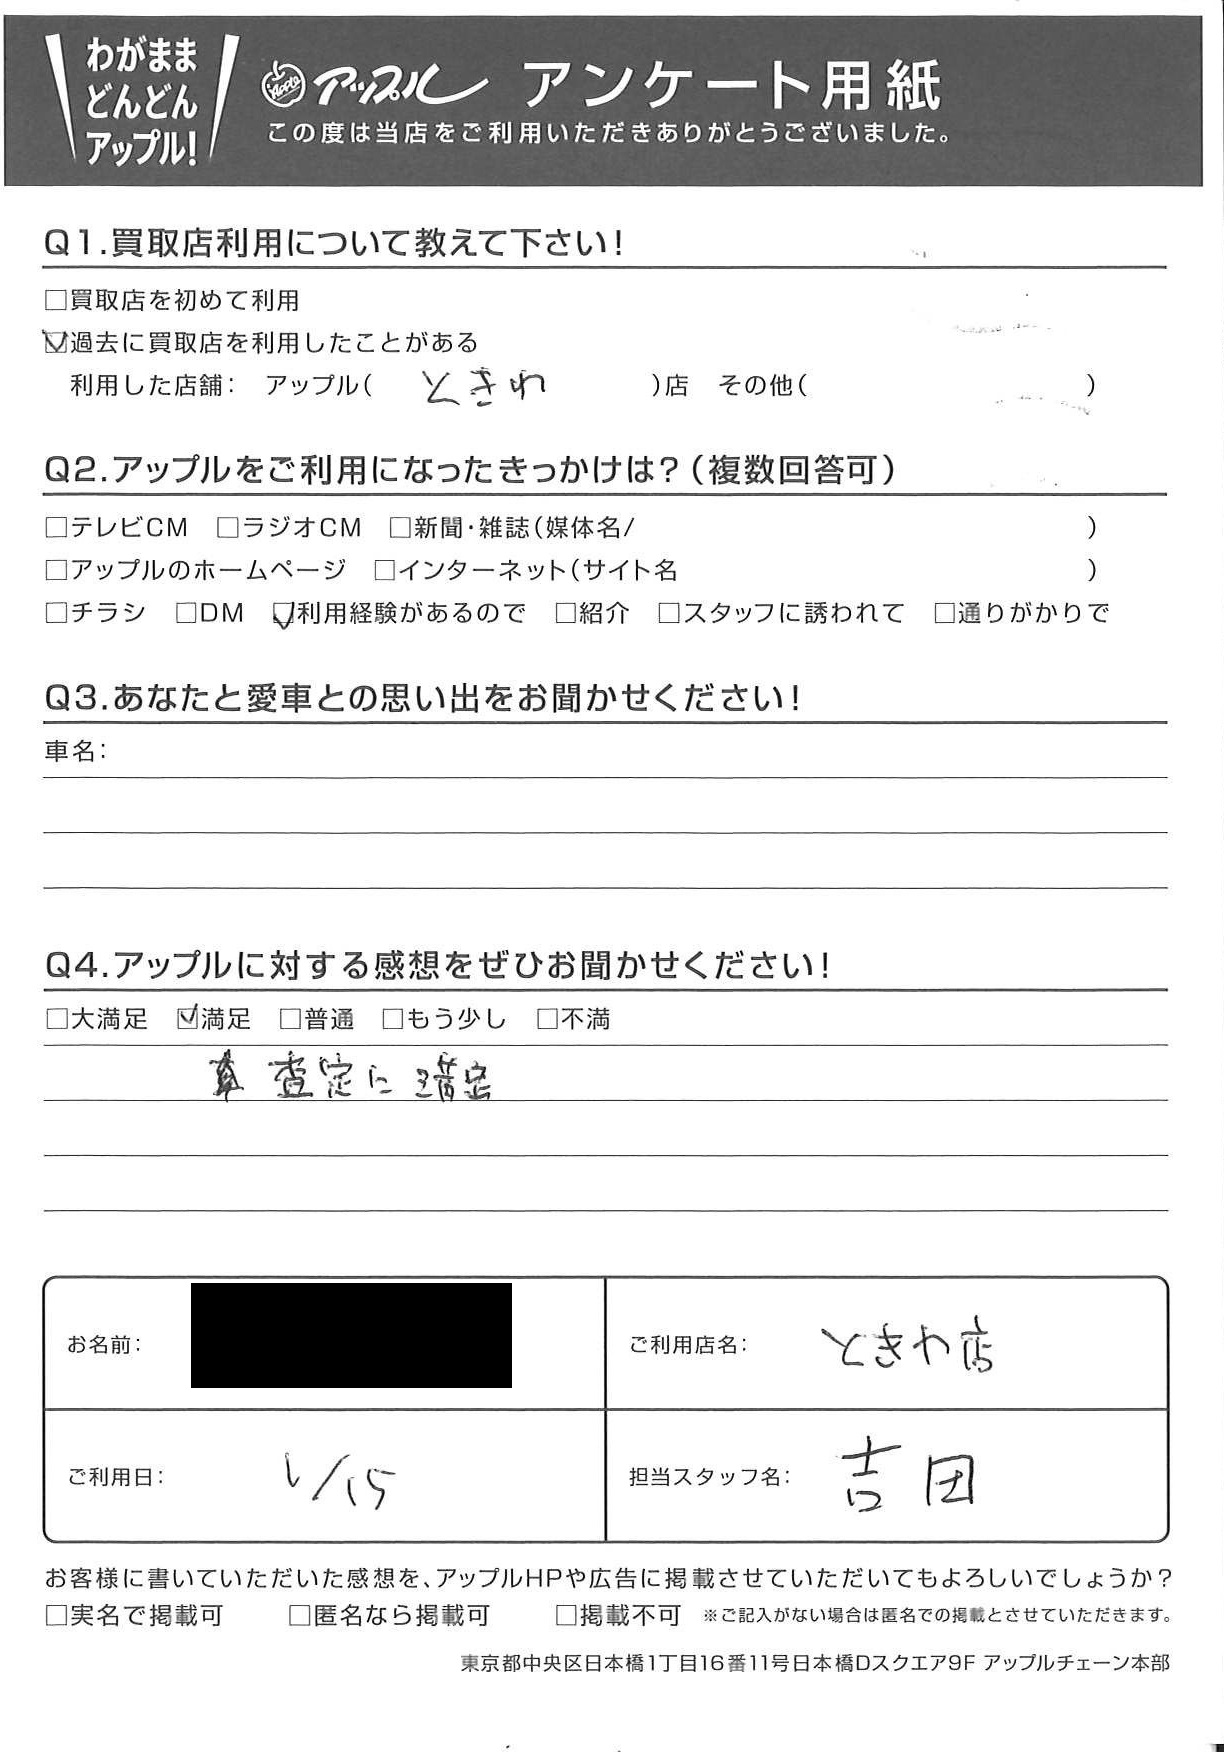 わがまま
どんどん
アップル!
Apple アップル アンケート用紙
この度は当店をご利用いただきありがとうございました。
Q1.買取店利用について教えて下さい!
□買取店を初めて利用
☑過去に買取店を利用したことがある
利用した店舗: アップル( ときわ )店 その他( )
Q2.アップルをご利用になったきっかけは?(複数回答可)
□テレビCM □ラジオCM □新聞・雑誌(媒体名/ )
□アップルのホームページ □インターネット(サイト名 )
□チラシ □DM ☑利用経験があるので □紹介 □スタッフに誘われて □通りがかりで
Q3.あなたと愛車との思い出をお聞かせください!
車名:
Q4.アップルに対する感想をぜひお聞かせください!
□大満足 ☑満足 □普通 □もう少し □不満
査定に満足
お名前:
ご利用店名: ときわ店
ご利用日: 1/15
担当スタッフ名: 吉田
お客様に書いていただいた感想を、アップルHPや広告に掲載させていただいてもよろしいでしょうか?
□実名で掲載可 □匿名なら掲載可 □掲載不可 ※ご記入がない場合は匿名での掲載とさせていただきます。
東京都中央区日本橋1丁目16番11号日本橋Dスクエア9F アップルチェーン本部